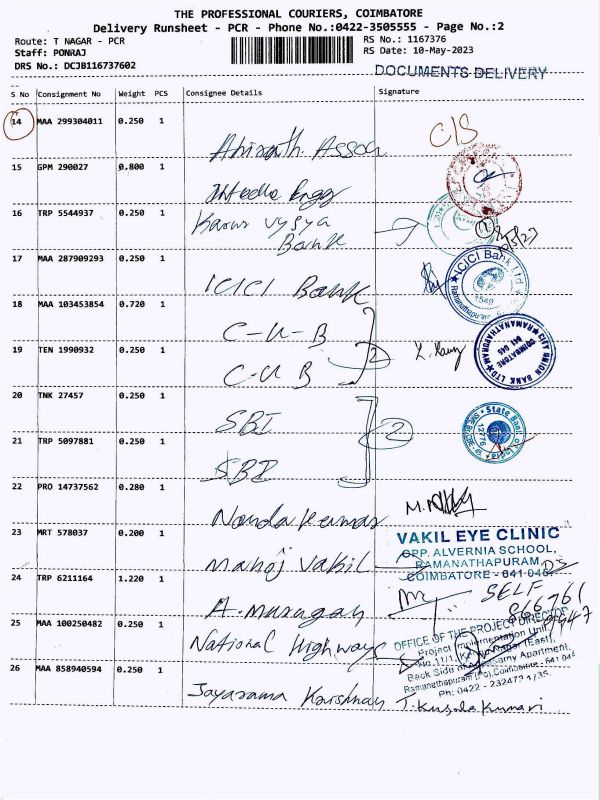 THE PROFESSIONAL COURIERS, COIMBATORE
Delivery Runsheet - PCR - Phone No.:0422-3505555 - Page No.:2
Route: T NAGAR - PCR
RS No.: 1167376
Staff: PONRAJ
RS Date: 10-May-2023
DRS No.: DCJB116737602
DOCUMENTS DELIVERY
S No Consignment No Weight PCS Consignee Details Signature
14 MAA 299304011 0.250 1
CIS
15 GPM 290027 0.800 1
16 TRP 5544937 0.250 1 Karur Vysya
Bank
17 MAA 287909293 0.250 1 ICICI Bank
ICICI Bank Ltd
Ramanathapuram
18 MAA 103453854 0.720 1 C-U-B
19 TEN 1990932 0.250 1 C-U B
2
CITY UNION BANK LTD
RAMANATHAPURAM
COIMBATORE
641 045
20 TNK 27457 0.250 1 SBI
21 TRP 5097881 0.250 1 SBI
2
State Bank of
22 PRO 14737562 0.280 1 Nanda Kumar
23 MRT 578037 0.200 1 Manoj Vakil
VAKIL EYE CLINIC
OPP. ALVERNIA SCHOOL,
RAMANATHAPURAM,
COIMBATORE - 641 045.
24 TRP 6211164 1.220 1 A. Murugan
SELF
25 MAA 100250482 0.250 1 National Highways
OFFICE OF THE PROJECT DIRECTOR
Project Implementation Unit,
Back Side of
Apartment,
Ramanathapuram (Po), Coimbatore - 641 045.
26 MAA 858940594 0.250 1 Jayarama Krishnan
T. Kusala Kumari